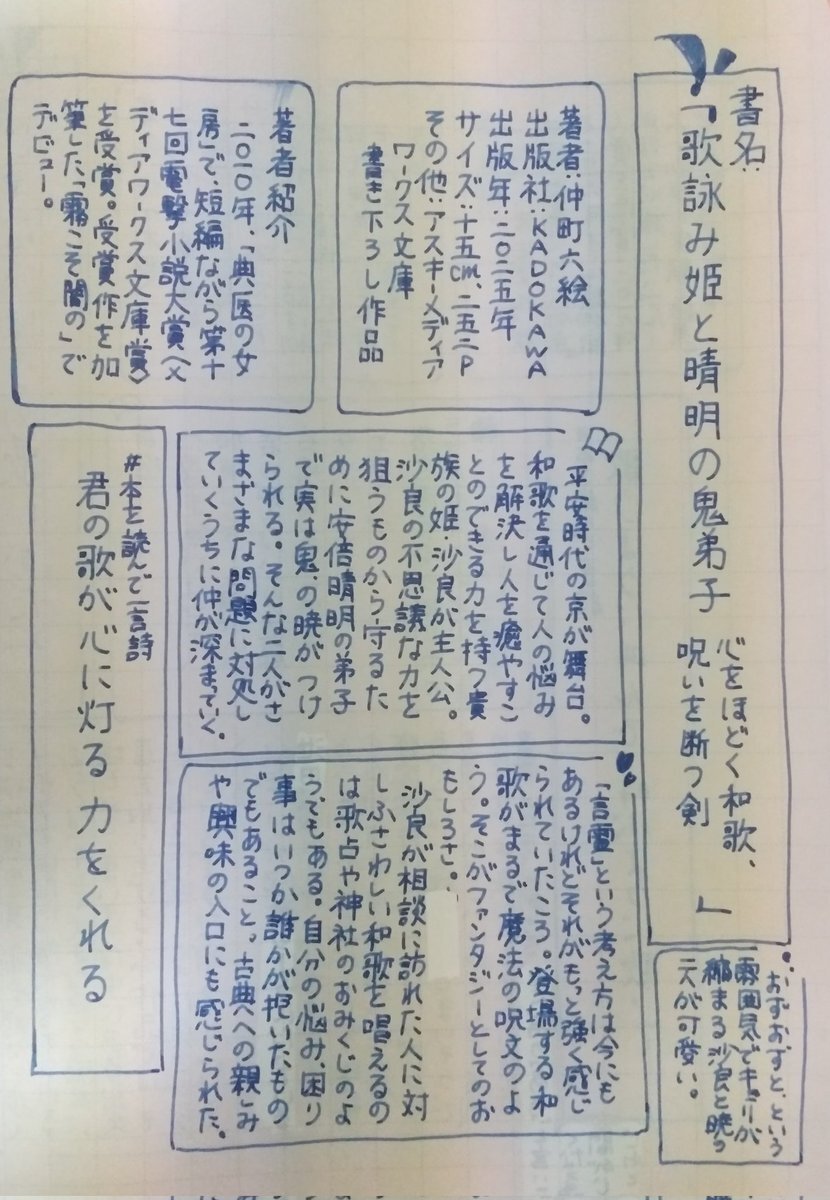 書名:
「歌詠み姫と晴明の鬼弟子
心をほどく和歌、
呪いを断つ剣」
著者:仲町六絵
出版社:KADOKAWA
出版年:二〇二五年
サイズ:十五cm、二五二P
その他:アスキーメディア
ワークス文庫
書き下ろし作品
著者紹介
二〇一〇年、「典医の女
房」で、短編ながら第十
七回電撃小説大賞〈メ
ディアワークス文庫賞〉
を受賞。受賞作を加
築した「霧こそ闇の」で
デビュー。
平安時代の京が舞台。
和歌を通じて人の悩み
を解決し人を癒やすこ
とのできる力を持つ貴
族の姫・沙良が主人公。
沙良の不思議な力を
狙うものから守るた
めに安倍晴明の弟子
で実は鬼、の暁がつけ
られる。そんな二人がさ
まざまな問題に対処し
ていくうちに仲が深まっていく。
#本を読んで一言詩
君の歌が心に灯る力をくれる
「言霊」という考え方は今にも
あるけれどそれがもっと強く感じ
られていたころ。登場する和
歌がまるで魔法の呪文のよ
う。そこがファンタジーとしてのお
もしろさ。
沙良が相談に訪れた人に対
しふさわしい和歌を唱えるの
は歌占や神社のおみくじのよ
うでもある。自分の悩み、困り
事はいつか誰かが抱いたもの
でもあること。古典への親しみ
や興味の入口にも感じられた。
おずおずと、という
雰囲気でキョリが
縮まる沙良と暁の
二人が可愛い。